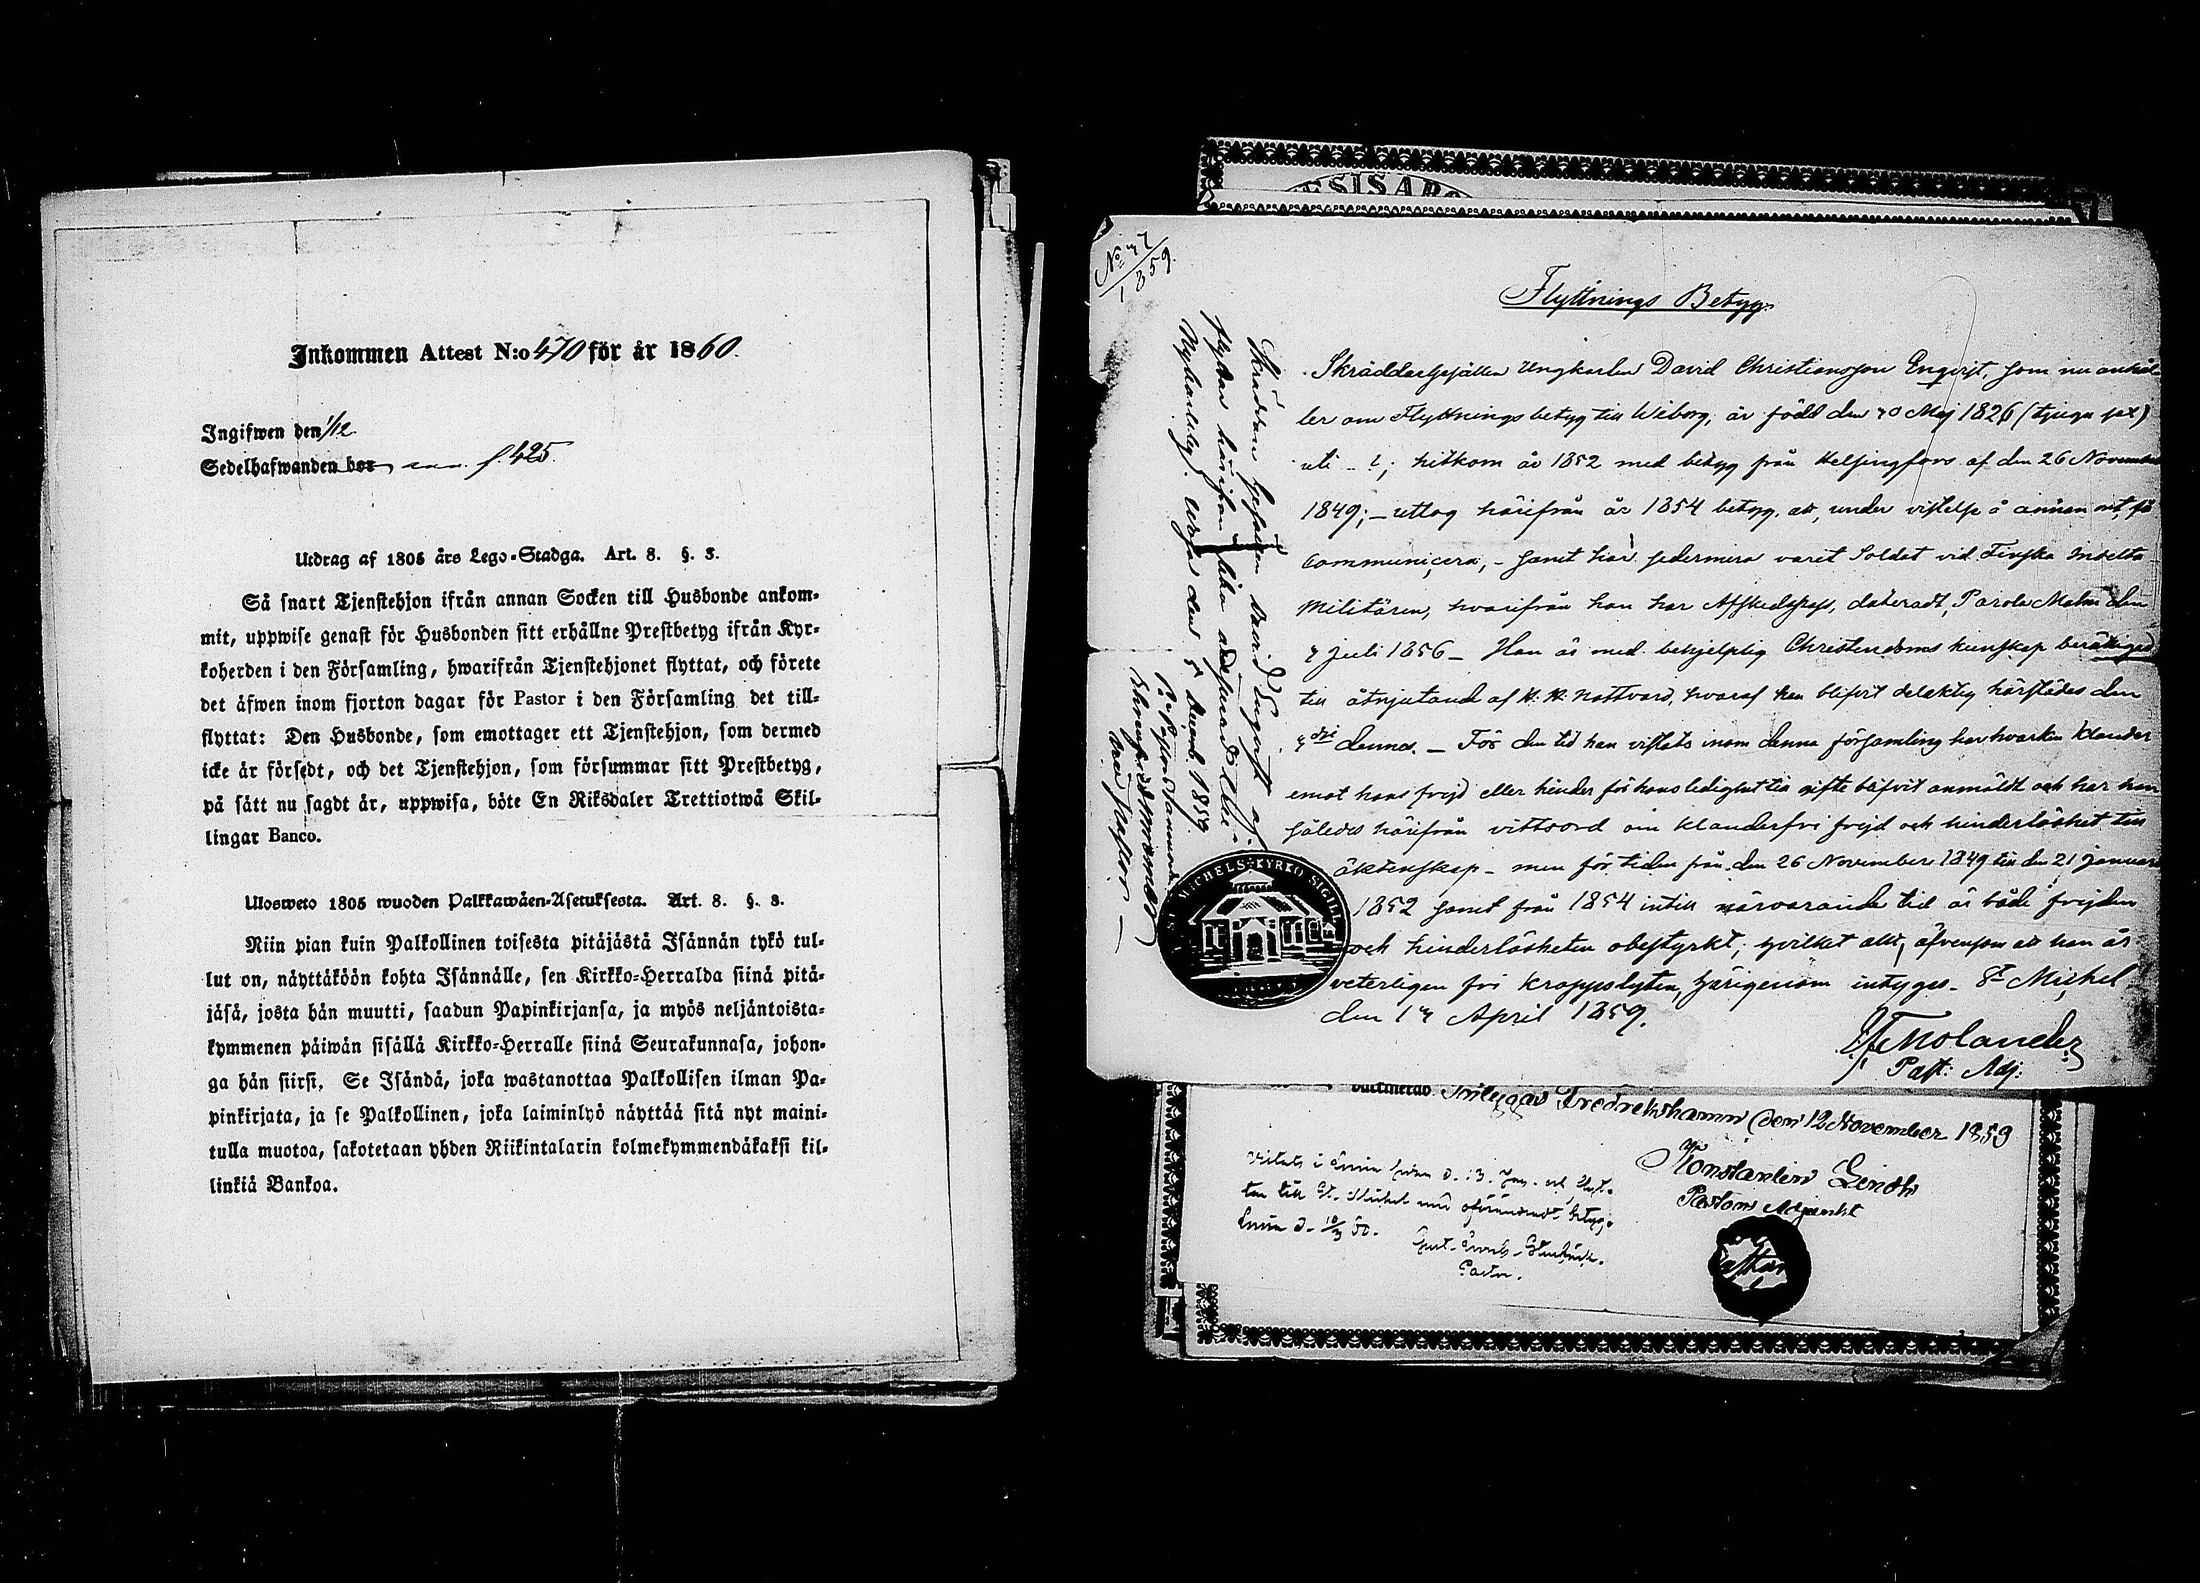 Inkommen Attest N:o 470 för år 1860.
Ingifwen den 1/12.
Sedelhafwanden bor f. 425.
Utdrag af 1805 års Lego-Stadga. Art. 8. §. 3.
Så snart Tjenstehjon ifrån annan Socken till Husbonde ankom-
mit, uppwise genast för Husbonden sitt erhållne Prestbetyg ifrån Kyr-
koherden i den Församling, hwarifrån Tjenstehjonet flyttat, och förete
det äfwen inom fjorton dagar för Pastor i den Församling det till-
flyttat: Den Husbonde, som emottager ett Tjenstehjon, som dermed
icke är försedt, och det Tjenstehjon, som försummar sitt Prestbetyg,
på sätt nu sagdt är, uppwisa, böte En Riksdaler Trettiotwå Skil-
lingar Banco.
Ulosweto 1805 wuoden Palkkawäen-Asetuksesta. Art. 8. §. 3.
Niin pian kuin Palkollinen toisesta pitäjästä Isännän tykö tul-
lut on, näyttäköön kohta Isännälle, sen Kirkko-Herralda siinä pitä-
jäsä, josta hän muutti, saadun Papinkirjansa, ja myös neljäntoista-
kymmenen päiwän sisällä Kirkko-Herralle siinä Seurakunnasa, johon-
ga hän siirsi. Se Isändä, joka wastanottaa Palkollisen ilman Pa-
pinkirjata, ja se Palkollinen, joka laiminlyö näyttää sitä nyt maini-
tulla muotoa, sakotetaan yhden Riikintalarin kolmekymmendäkaksi kil-
linkiä Bankoa.
SISAR
No 47
1859.
Flyttnings Betyg.
Skräddargesällen Ungkarlen David Christiansson Enqvist, som nu anhål-
ler om Flyttningsbetyg till Wiborg, är född den 20 Maj 1826 (tjugu sex)
uti - ?; hitkom år 1852 med betyg från Helsingfors af den 26 November
1849; - uttog härifrån år 1854 betyg, att, under vistelse å annan ort, få
communicera, - samt har sedermera varit Soldat vid Finska Indelta
Militären, hvarifrån han har Afskedspass, dateradt, Parola Malm den
7 Juli 1856 - Han är med behjelplig Christendoms kunskap berättigad
till åtnjutande af H. H. Nattvard, hvaraf han blifvit delaktig härstädes den
7de dennes. - För den tid han vistats inom denna församling har hvarken klander
emot hans frejd eller hinder för hans ledighet till gifte blifvit anmäldt och har han
således härifrån vittsord om klanderfri frejd och hinderlöshet till
äktenskap - men för tiden från den 26 November 1849 till den 21 Januari
1852 samt från 1854 intill närvarande tid är både frejden
och hinderlösheten obestyrkt; hvilket allt, äfvensom att han är
veterligen fri kroppslyten, härigenom intygas. St Michel
den 17 April 1859.
Molander
Past: Adj:
Skräddare Gesällen David Engqvist af-
flyttar härifrån
Nykarleby. den 5 Decemb. 1859.
St MICHELS KYRKO SIGILL
Intygar Fredrikshamn den 12 November 1859
Konstantin Lindh
Pastors Adjunkt
Vistats i Lovisa sedan d. 13. Jan. och flyt-
tar till St. Michel med oförändradt betyg.
Lovisa d. 10/3 50.
Pastor.